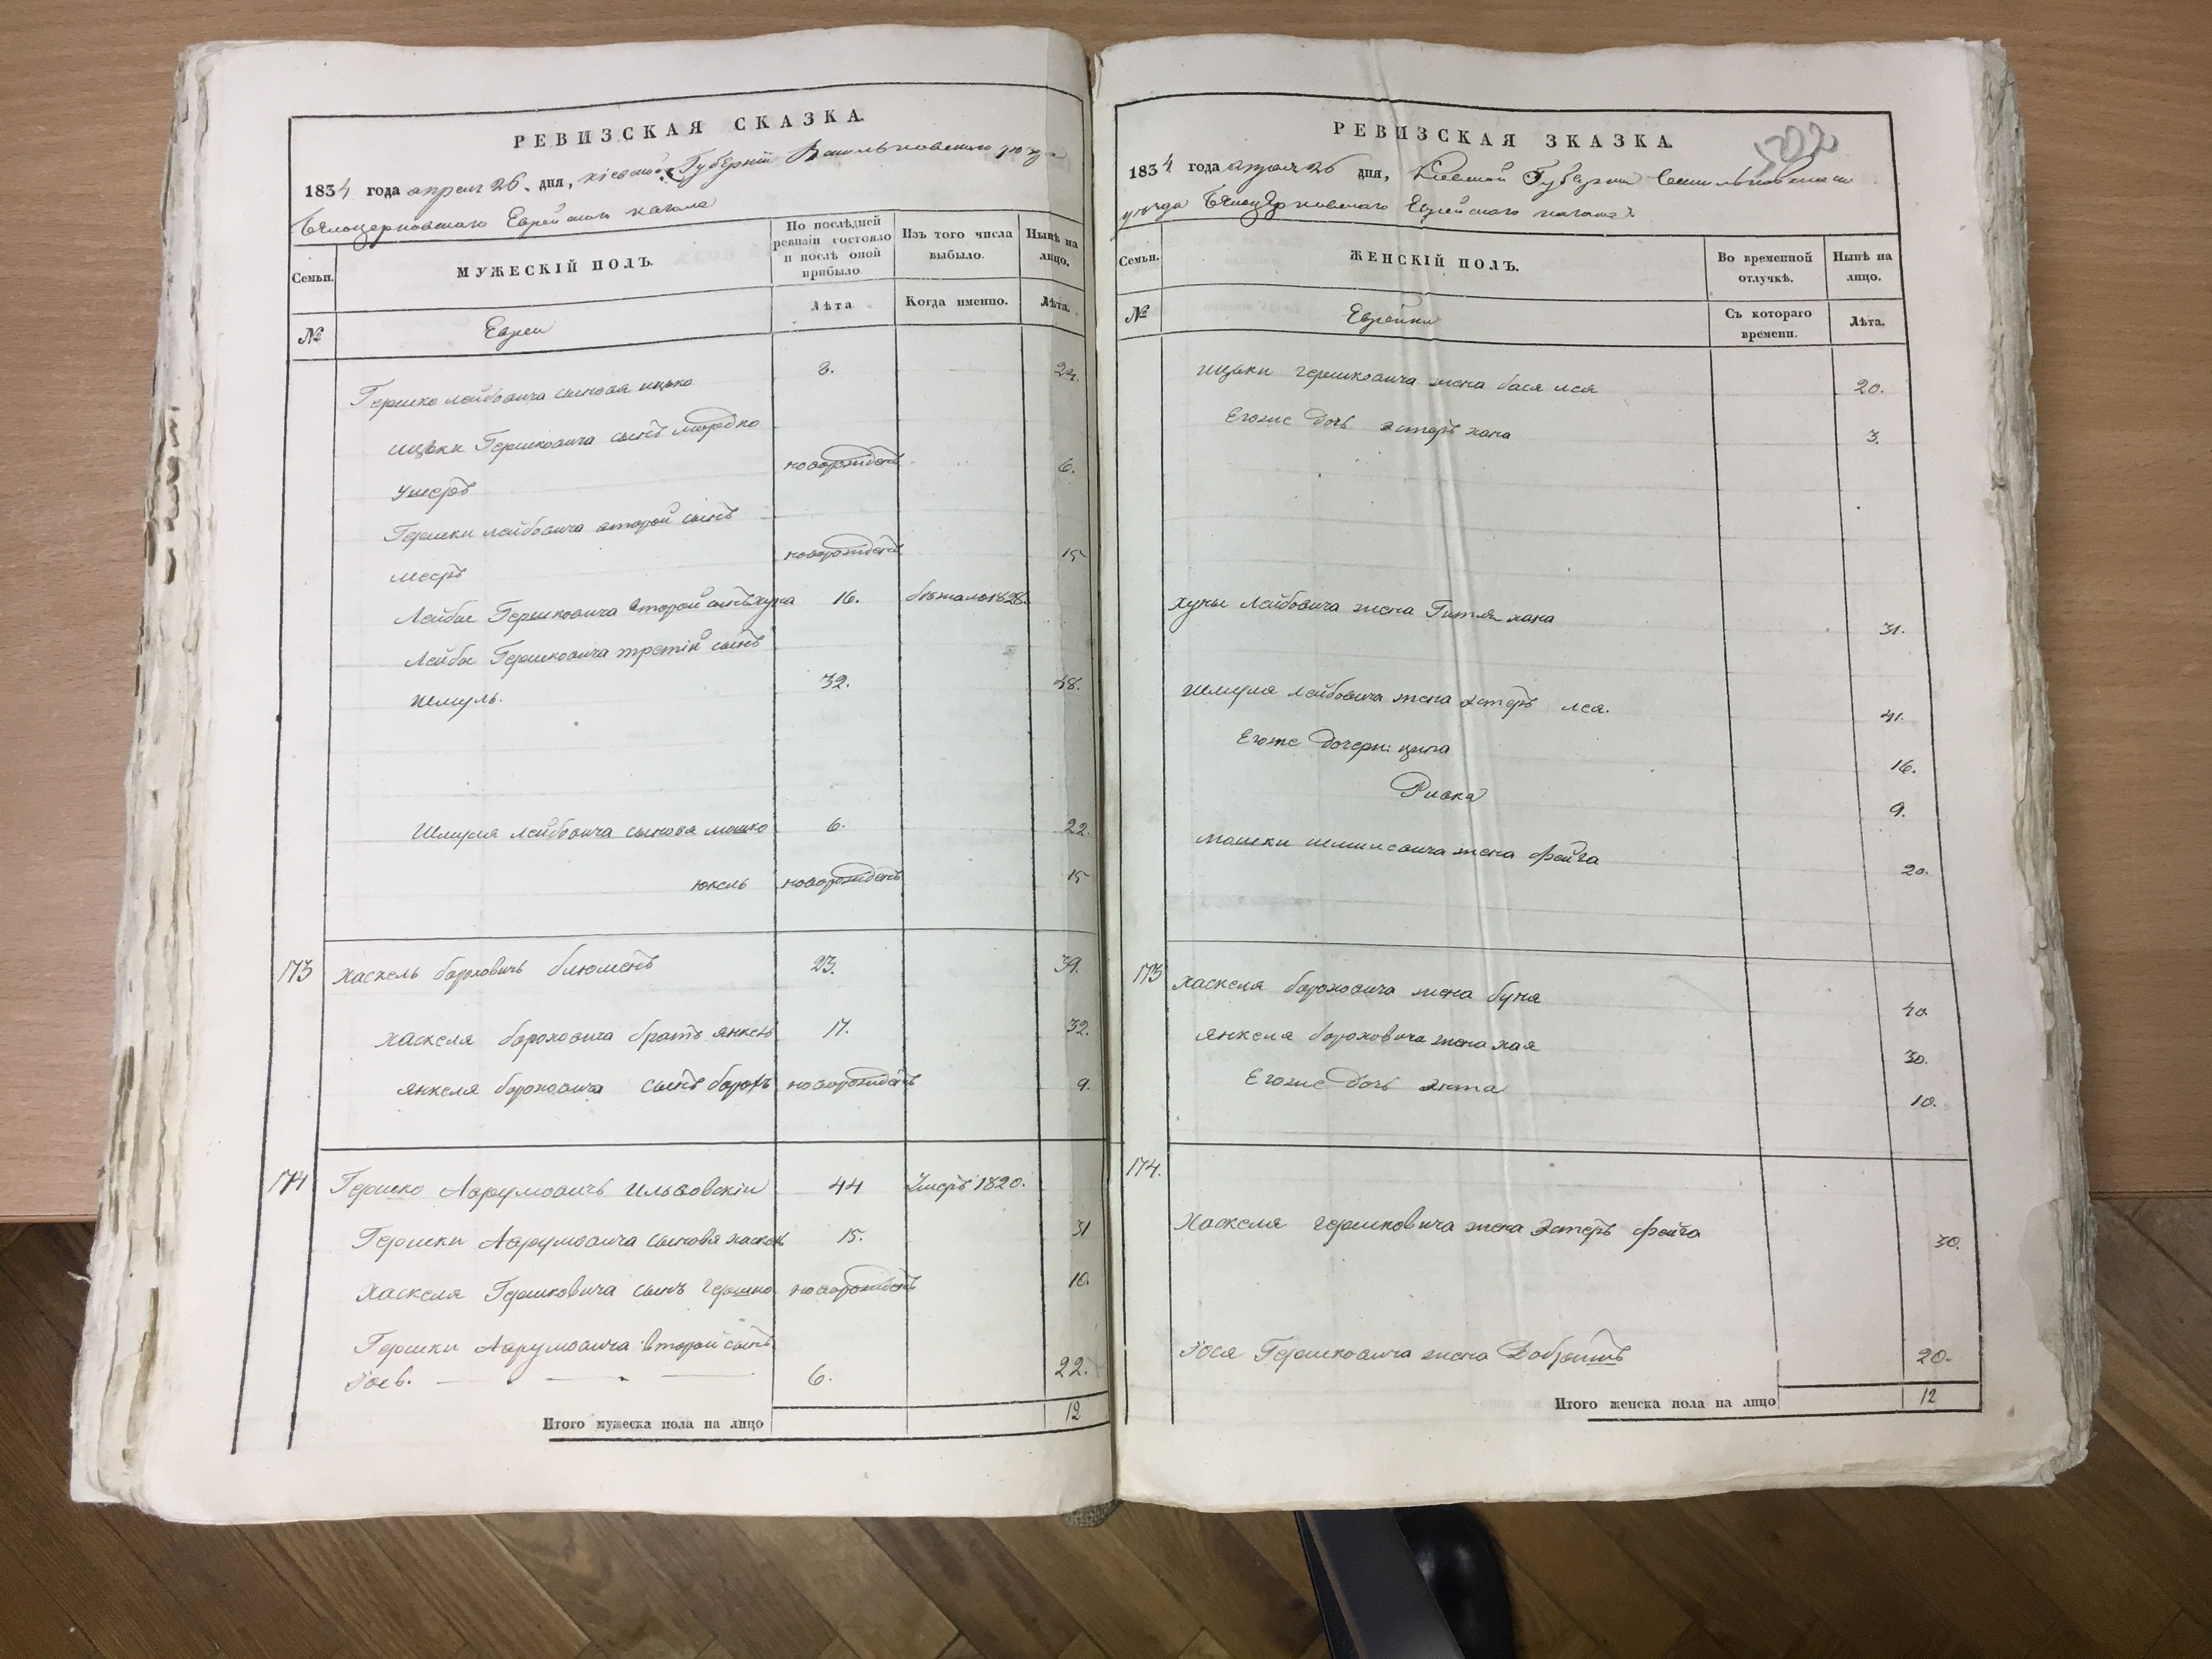 РЕВИЗСКАЯ СКАЗКА.
1834 года апреля 26. дня, Кіевской Губерніи Васильковскаго уезда
Бѣлоцерковскаго Еврейскаго кагала
Семьи.
МУЖЕСКІЙ ПОЛЪ.
По послѣдней ревизіи состояло и послѣ оной прибыло
Изъ того числа выбыло.
Нынѣ на лицо.
№
Евреи
Лѣта
Когда именно.
Лѣта.
Гершко лейбовича сыновя ицько 8. 24.
ицьки Гершковича сынъ мордко
новорожденъ 6.
Гершки лейбовича второй сынъ
мееръ новорожденъ 15
Лейбы Гершковича второй сынъ хуна 16. бежалъ 1828.
Лейбы Гершковича третій сынъ
шмуль. 32. 48.
Шмуля лейбовича сыновя мошко 6. 22.
юкель новорожденъ 15
173 хаскель борховичь блюменъ 23. 39.
хаскеля борховича братъ янкель 17. 32.
янкеля борховича сынъ борухъ новорожденъ 9.
174 Гершко Аврумовичъ Ильвовскій 44 Умеръ 1820.
Гершки Аврумовича сыновя хаскель 15. 31
Хаскеля Гершковича сынъ гершко новорожденъ 10.
Гершки Аврумовича второй сынъ
6. 22.
Итого мужеска пола на лицо 12
РЕВИЗСКАЯ ЗКАЗКА.
502
1834 года апреля 26 дня, Кіевской Губерніи Васильковскаго
уезда Бѣлоцерковскаго Еврейскаго кагала
Семьи.
ЖЕНСКІЙ ПОЛЪ.
Во временной отлучкѣ.
Нынѣ на лицо.
№
Еврейки
Съ котораго времени.
Лѣта.
ицьки гершковича жена бася лея 20.
Егоже дочь эстеръ хана 3.
хуны Лейбовича жена Гитля хана 31.
шмуля лейбовича жена эстеръ лея. 41.
Егоже дочери: ципа 16.
Ривка 9.
мошки шмулевича жена фейга 20.
173 хаскеля борховича жена буня 40
янкеля борховича жена хая 30.
Егоже дочь энта 10.
174.
Хаскеля гершковича жена эстеръ фейга 30.
Іося Гершковича жена 20.
Итого женска пола на лицо 12